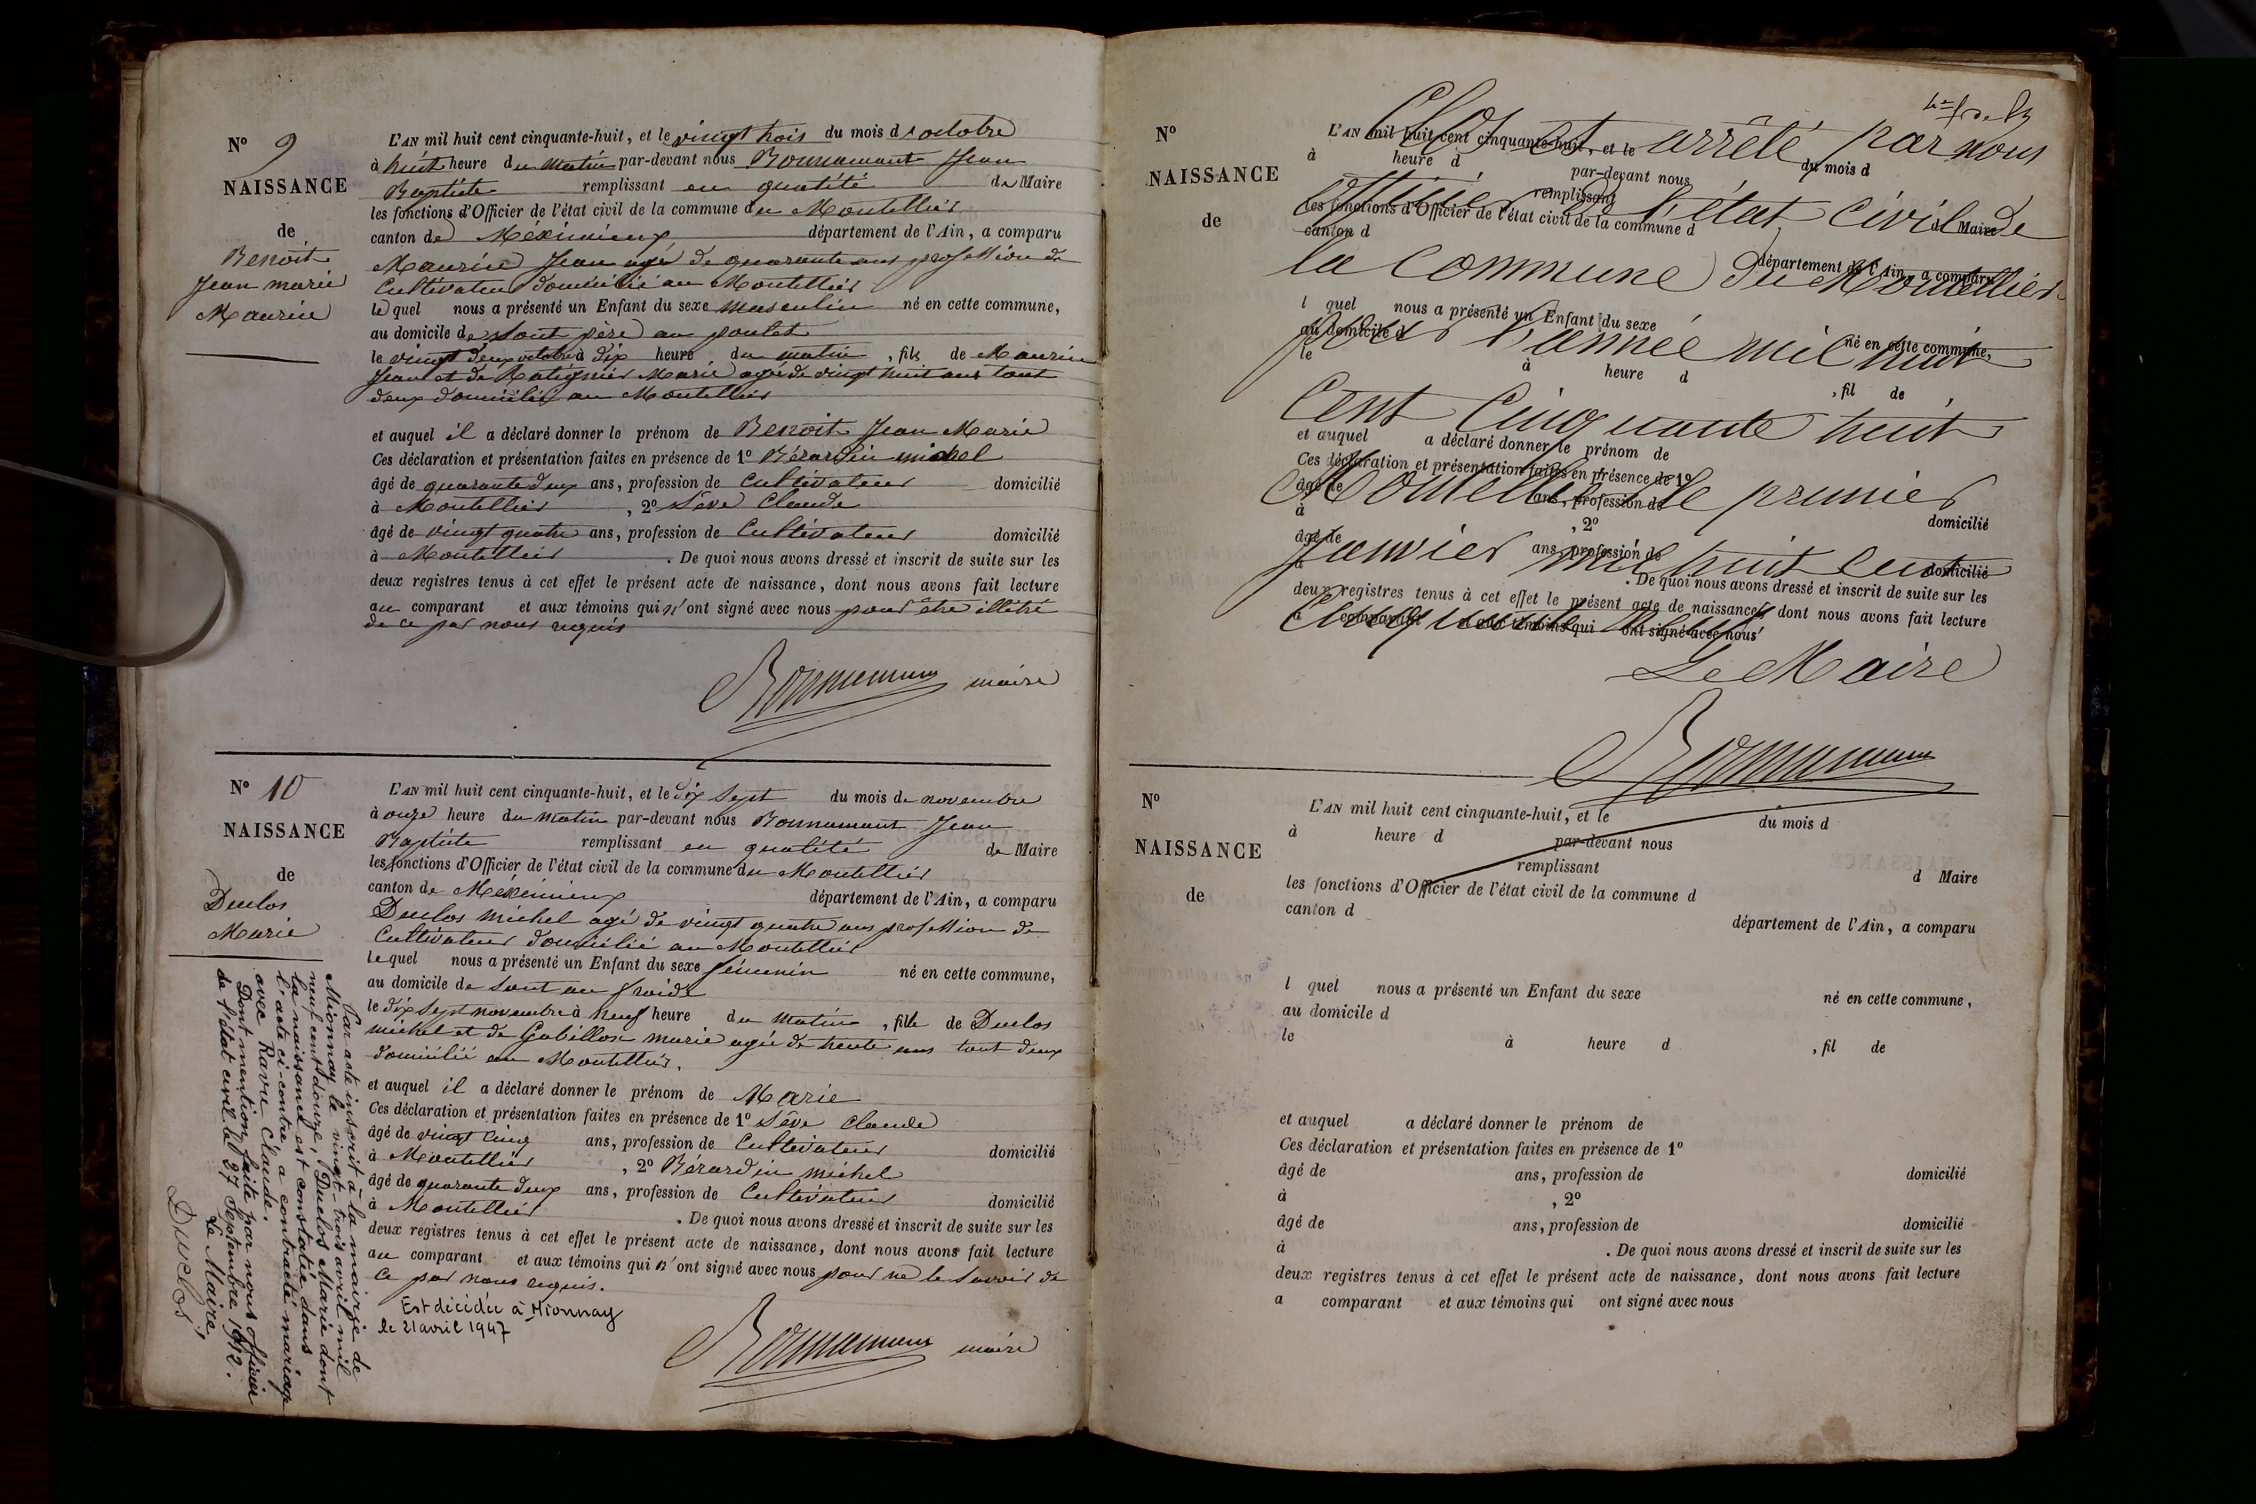 N° 9
NAISSANCE
de
Benoit
Jean marie
Maurin
L'AN mil huit cent cinquante-huit, et le vingt trois du mois d'octobre
à huit heure du matin par-devant nous Bonnamant Jean
Baptiste remplissant en qualité de Maire
les fonctions d'Officier de l'état civil de la commune du Montellier
canton de Méximieux département de l'Ain, a comparu
Maurin Jean agé de quarante ans profession de
Cultivateur domicilié au Montellier
lequel nous a présenté un Enfant du sexe masculin né en cette commune,
au domicile de sont père au poulet
le vingt deux octobre à dix heure du matin, fils de Maurin
Jean et de Ratignier Marie agée de vingt huit ans tout
deux domicilié au Montellier
et auquel il a déclaré donner le prénom de Benoit Jean Marie
Ces déclaration et présentation faites en présence de 1° Bérardin michel
âgé de quarante deux ans, profession de Cultivateur domicilié
à Montellier, 2° Sève Claude
âgé de vingt quatre ans, profession de Cultivateur domicilié
à Montellier. De quoi nous avons dressé et inscrit de suite sur les
deux registres tenus à cet effet le présent acte de naissance, dont nous avons fait lecture
au comparant et aux témoins qui n'ont signé avec nous pour être illétré
de ce par nous requis
maire
N° 10
NAISSANCE
de
Duclos
Marie
L'AN mil huit cent cinquante-huit, et le dix sept du mois de novembre
à onze heure du matin par-devant nous Bonnamant Jean
Baptiste remplissant en qualité de Maire
les fonctions d'Officier de l'état civil de la commune du Montellier
canton de Méximieux département de l'Ain, a comparu
Duclos michel agé de vingt quatre ans profession de
Cultivateur domicilié au Montellier
lequel nous a présenté un Enfant du sexe féminin né en cette commune,
au domicile de sont au
le dix sept novembre à neuf heure du matin, fille de Duclos
michel et de Gabillon marie agée de trente ans tout deux
domicilié au Montellier.
et auquel il a déclaré donner le prénom de Marie
Ces déclaration et présentation faites en présence de 1° Sève Claude
âgé de vingt cinq ans, profession de Cultivateur domicilié
à Montellier, 2° Bérardin michel
âgé de quarante deux ans, profession de Cultivateur domicilié
à Montellier. De quoi nous avons dressé et inscrit de suite sur les
deux registres tenus à cet effet le présent acte de naissance, dont nous avons fait lecture
au comparant et aux témoins qui n'ont signé avec nous pour ne le savoir de
ce par nous requis.
maire
Est décédée à Mionnay
le 21 avril 1947
Par acte inscrit à la mairie de
Mionnay le vingt-trois avril mil
neuf cent douze, Duclos Marie dont
la naissance est constatée dans
l'acte ci-contre, a contracté mariage
avec Ravu Claude.
Dont mention faite par nous officier
de l'état civil le 27 Septembre 1912.
Le Maire,
Duclos
N°
NAISSANCE
de
L'AN mil huit cent cinquante-huit, et le du mois d
à heure d par-devant nous
remplissant d Maire
les fonctions d'Officier de l'état civil de la commune d
canton d département de l'Ain, a comparu
l quel nous a présenté un Enfant du sexe né en cette commune,
au domicile d
le à heure d , fil de
et auquel a déclaré donner le prénom de
Ces déclaration et présentation faites en présence de 1°
âgé de ans, profession de domicilié
à , 2°
âgé de ans, profession de domicilié
à . De quoi nous avons dressé et inscrit de suite sur les
deux registres tenus à cet effet le présent acte de naissance, dont nous avons fait lecture
a comparant et aux témoins qui ont signé avec nous
Clos et arrêté par nous
officier de l'état civil de
la Commune du Montellier
pour l'année mil huit
Cent Cinquante huit
Montellier le premier
Janvier mil huit cent
Cinquante neuf
Le Maire
N°
NAISSANCE
de
L'AN mil huit cent cinquante-huit, et le du mois d
à heure d par-devant nous
remplissant d Maire
les fonctions d'Officier de l'état civil de la commune d
canton d département de l'Ain, a comparu
l quel nous a présenté un Enfant du sexe né en cette commune,
au domicile d
le à heure d , fil de
et auquel a déclaré donner le prénom de
Ces déclaration et présentation faites en présence de 1°
âgé de ans, profession de domicilié
à , 2°
âgé de ans, profession de domicilié
à . De quoi nous avons dressé et inscrit de suite sur les
deux registres tenus à cet effet le présent acte de naissance, dont nous avons fait lecture
a comparant et aux témoins qui ont signé avec nous